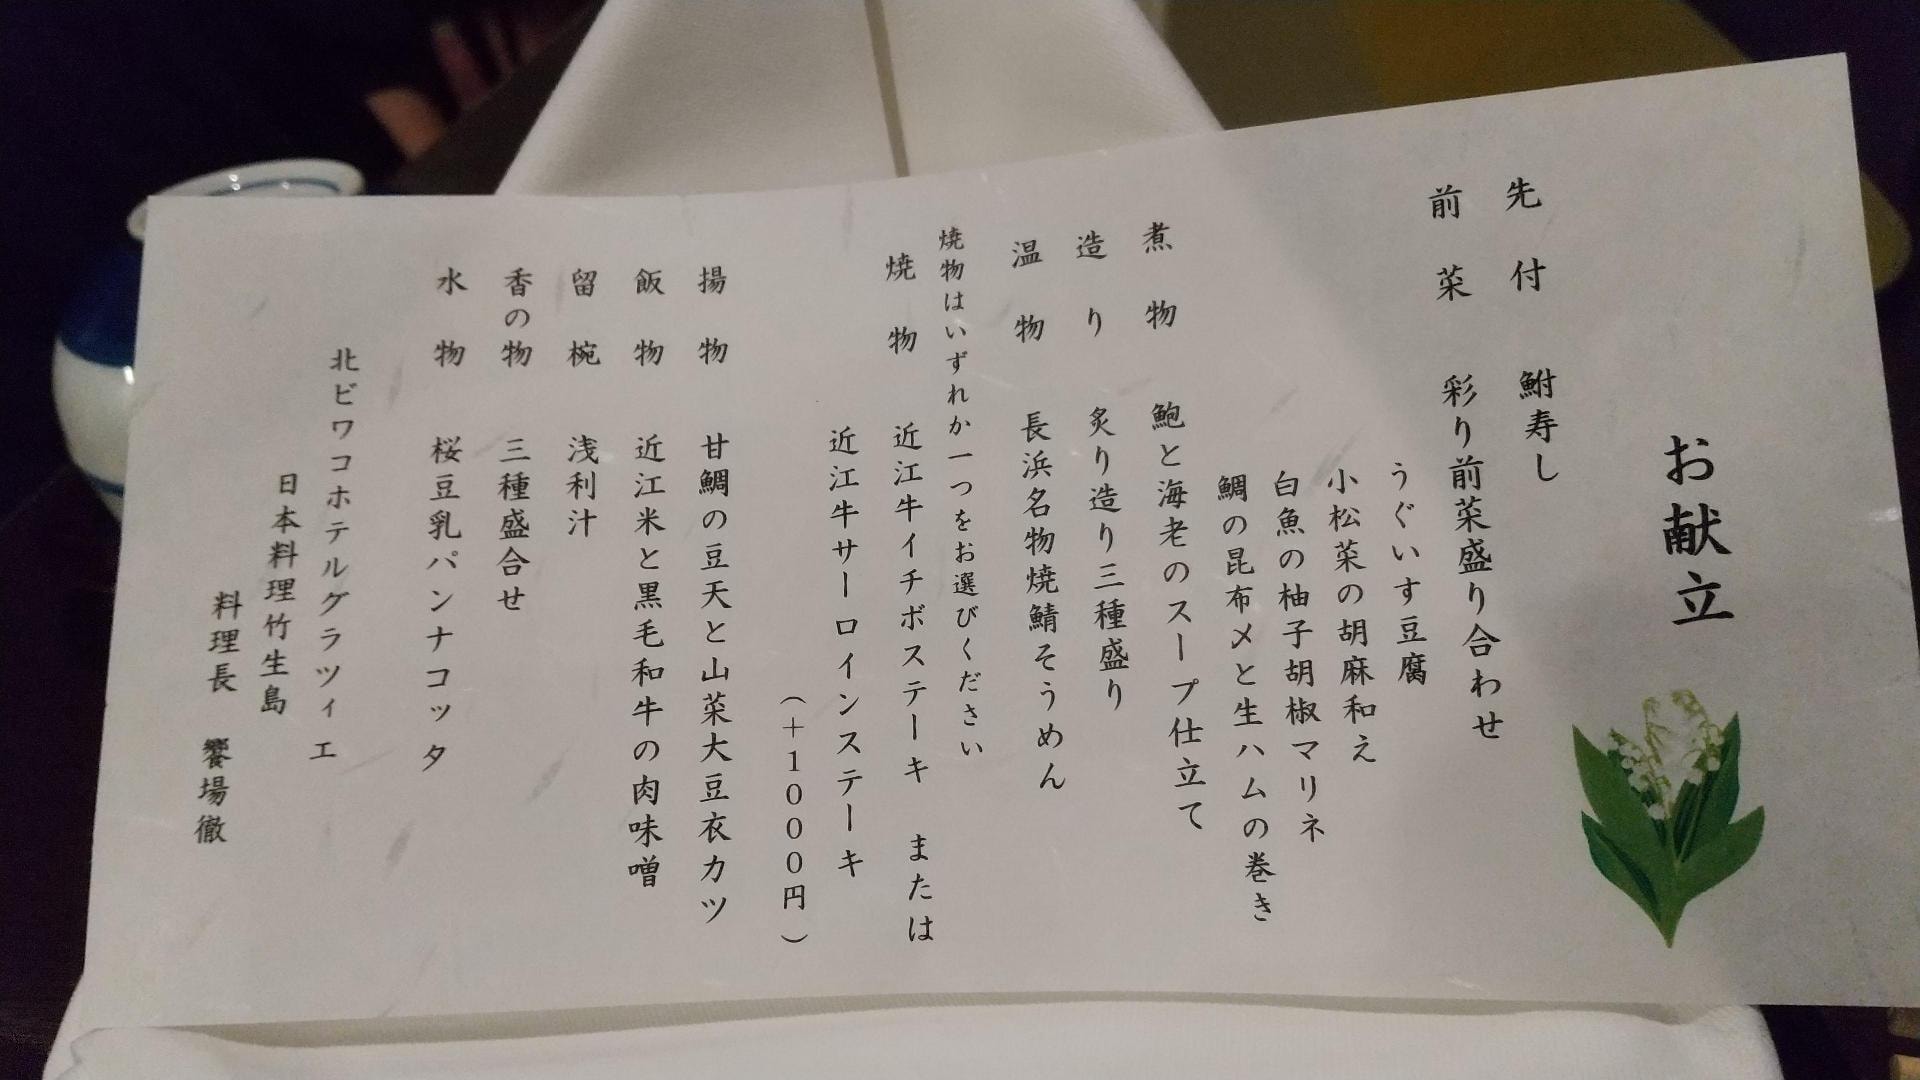 お献立
先付 鮒寿し
前菜 彩り前菜盛り合わせ
うぐいす豆腐
小松菜の胡麻和え
白魚の柚子胡椒マリネ
鯛の昆布〆と生ハムの巻き
煮物 鮑と海老のスープ仕立て
造り 炙り造り三種盛り
温物 長浜名物焼鯖そうめん
焼物はいずれか一つをお選びください
焼物 近江牛イチボステーキ または
近江牛サーロインステーキ
（＋１０００円）
揚物 甘鯛の豆天と山菜大豆衣カツ
飯物 近江米と黒毛和牛の肉味噌
留椀 浅利汁
香の物 三種盛合せ
水物 桜豆乳パンナコッタ
北ビワコホテルグラツィエ
日本料理竹生島
料理長 饗場徹